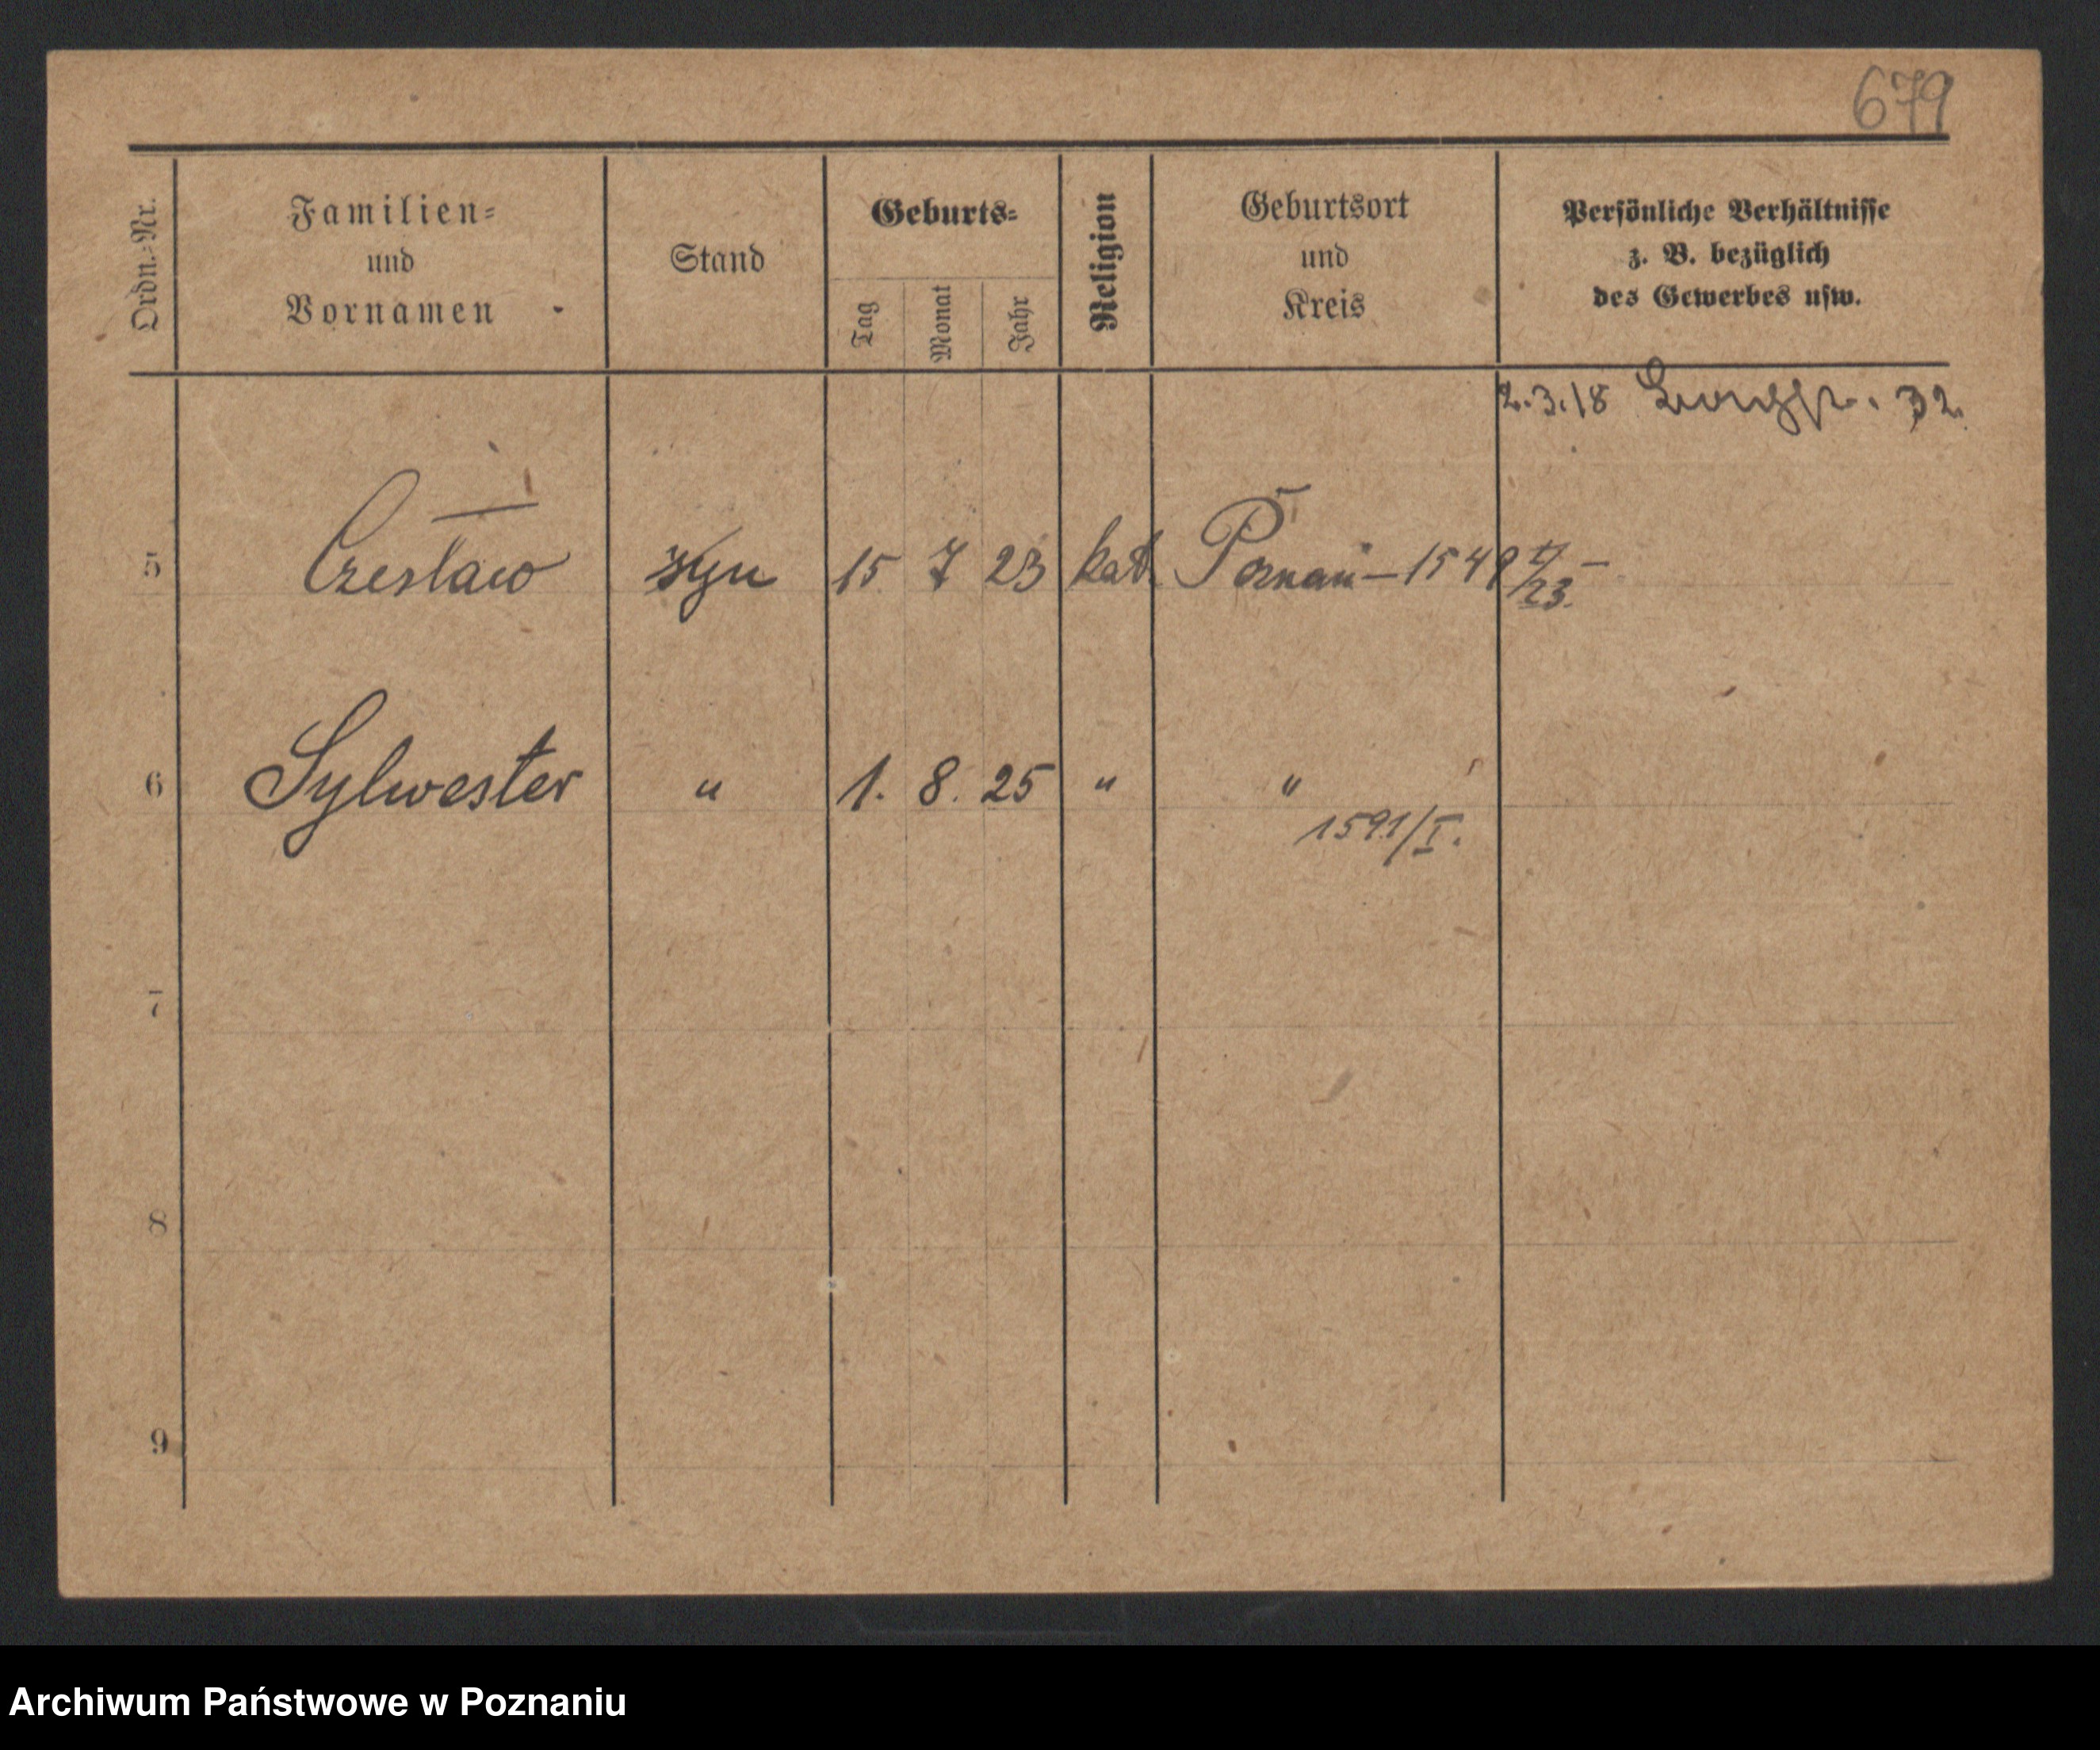 679
Ordn.-Nr.
Familien-
und
Vornamen
Stand
Geburts-
Tag
Monat
Jahr
Religion
Geburtsort
und
Kreis
Persönliche Verhältnisse
z. B. bezüglich
des Gewerbes usw.
2.3.18 32.
5 Czesław syn 15. 7 23 kat. Poznań – 1549 I/23. –
6 Sylwester " 1. 8. 25 " "
1591/I.
7
8
9
Archiwum Państwowe w Poznaniu